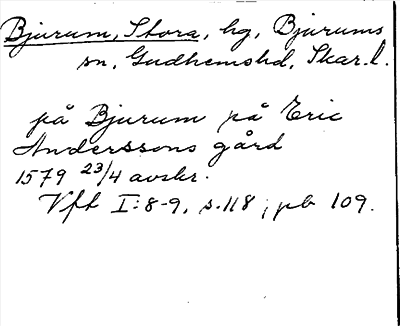 Bjurum, Stora, hg, Bjurums
sn, Gudhemshd, Skar.l.
på Bjurum på Eric
Anderssons gård
1579 23/4 avskr.
Vft I:8-9, s.118, pb 109.